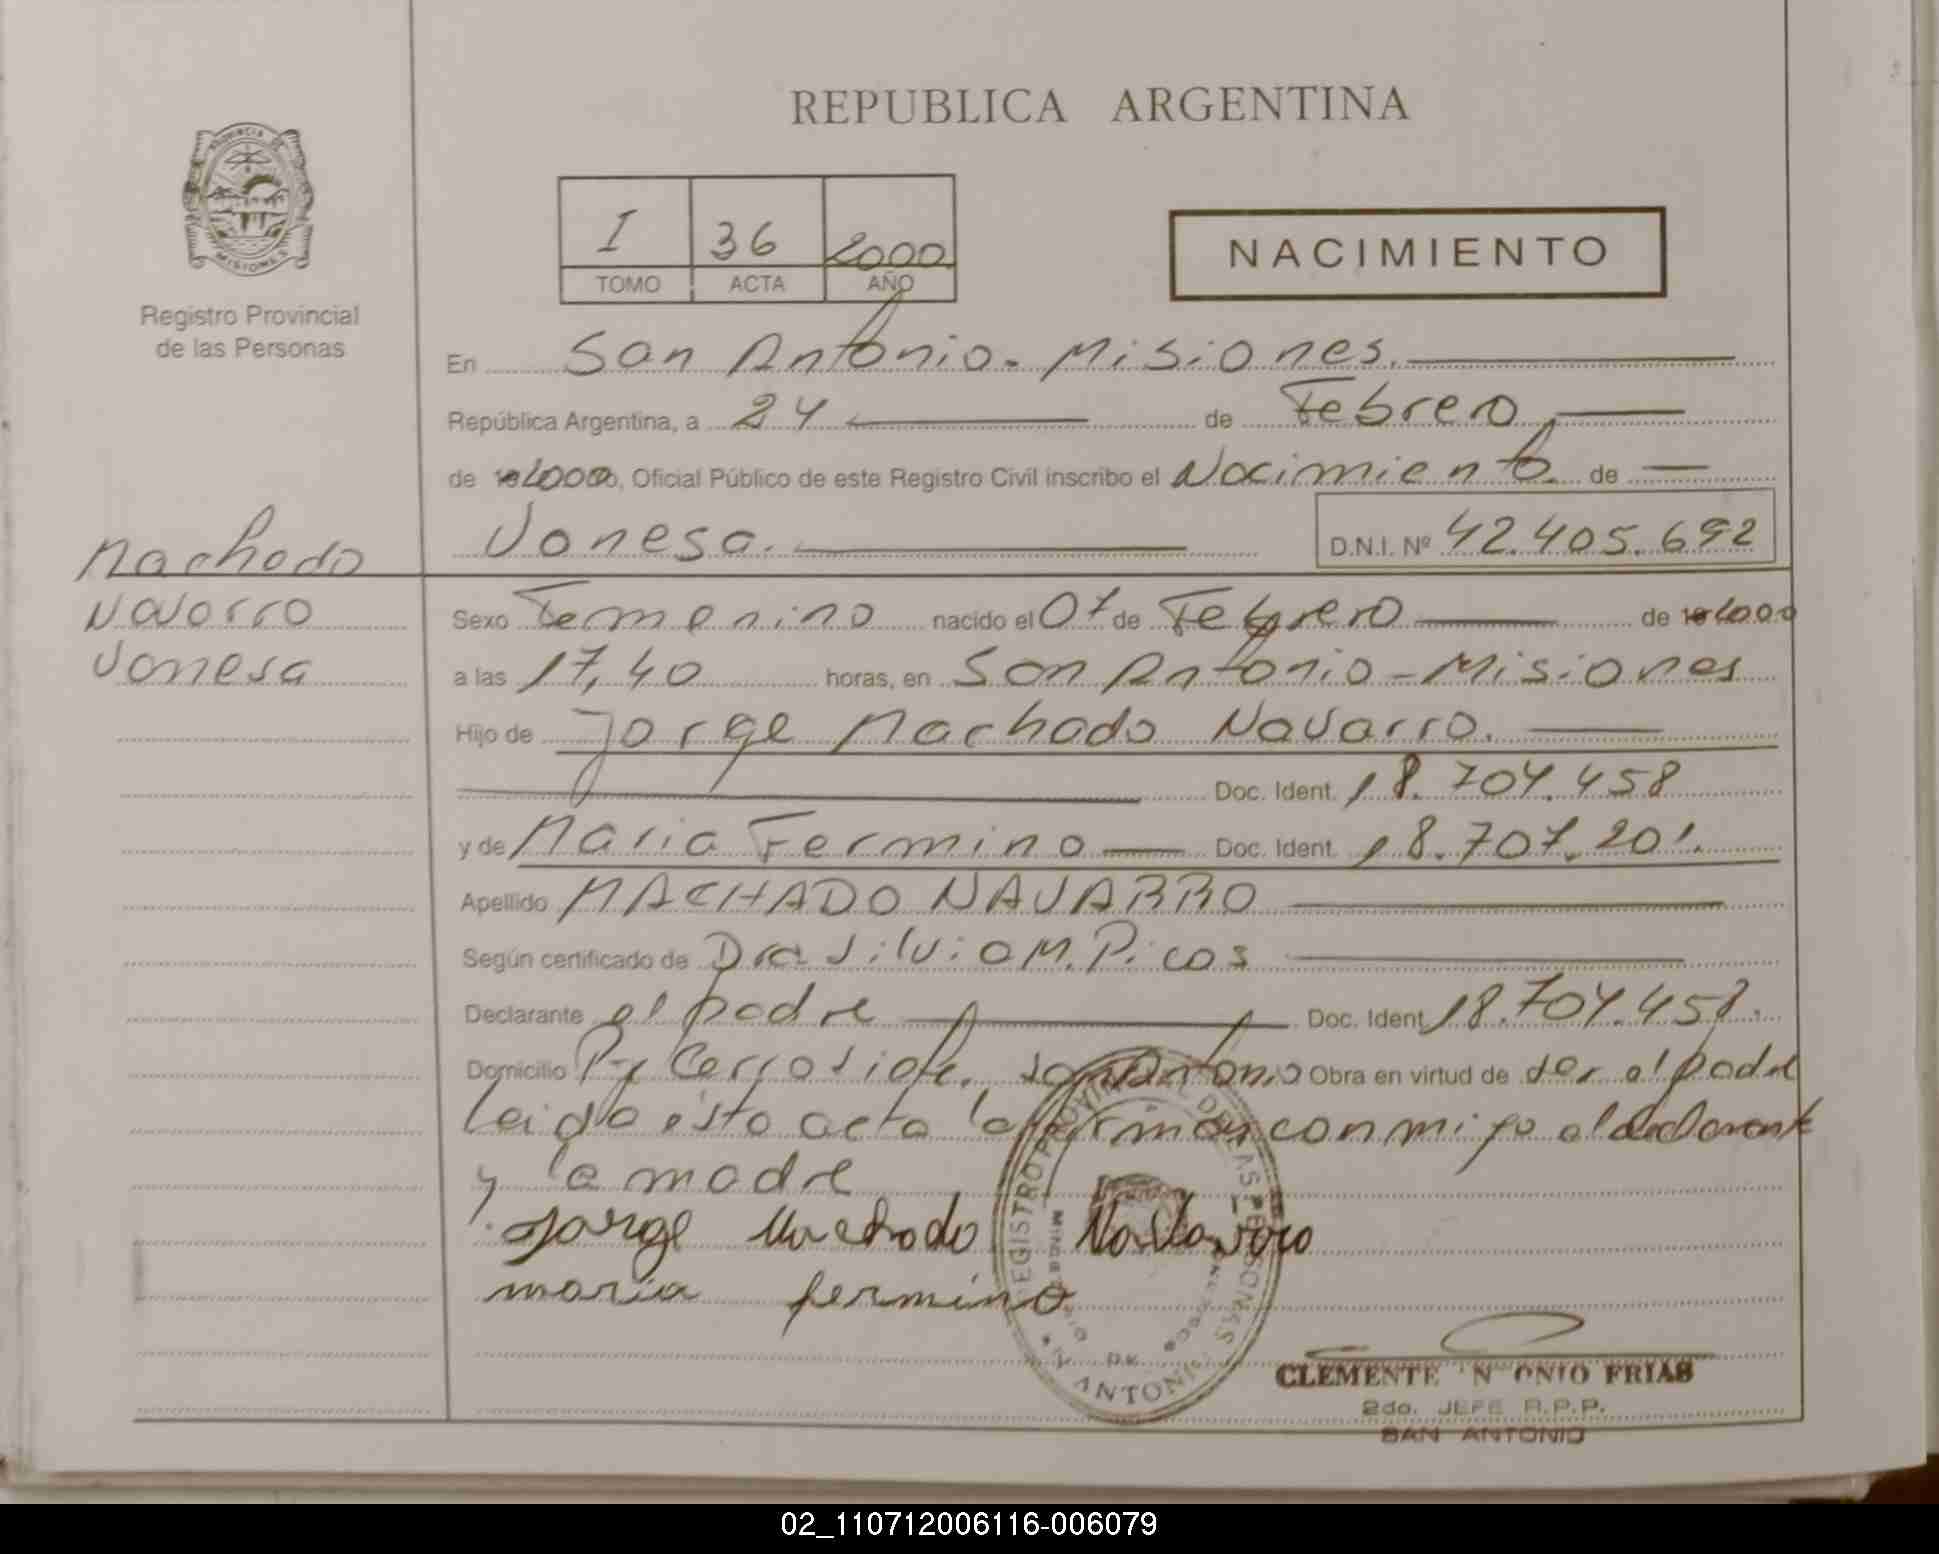 REPUBLICA ARGENTINA
PROVINCIA DE
MISIONES
Registro Provincial
de las Personas
I 36 2000
TOMO ACTA AÑO
NACIMIENTO
En San Antonio - Misiones.
República Argentina, a 24 de Febrero
de 2000, Oficial Público de este Registro Civil inscribo el Nacimiento de
Vanesa. D.N.I. Nº 42.405.692
Machado
Navarro
Vanesa
Sexo Femenino nacido el 07 de Febrero de 2000
a las 17,40 horas, en San Antonio - Misiones
Hijo de Jorge Machado Navarro.
Doc. Ident. 18.704.458
y de Maria Fermino Doc. Ident. 18.707.201.
Apellido MACHADO NAVARRO
Según certificado de Dra Silvia M. Picos
Declarante el padre Doc. Ident. 18.704.458.
Domicilio San Antonio Obra en virtud de ser el padre
Leida esta acta la firman conmigo el declarante
y la madre
Jorge Machado Navarro
maria fermino
REGISTRO PROVINCIAL DE LAS PERSONAS
ANTONIO
CLEMENTE FRIAS
2do. JEFE R.P.P.
SAN ANTONIO
02_110712006116-006079